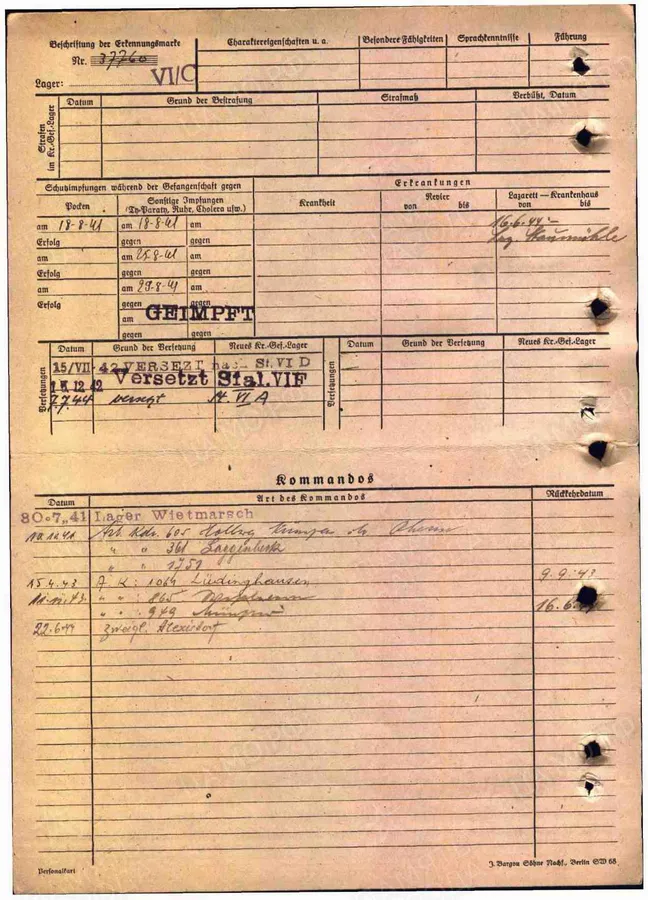 Beschriftung der Erkennungsmarke
Nr. 37760
Lager: VI/C
Charaktereigenschaften u. a.
Besondere Fähigkeiten
Sprachkenntnisse
Führung
Strafen im Kr.-Gef.-Lager
Datum
Grund der Bestrafung
Strafmaß
Verbüßt, Datum
Schutzimpfungen während der Gefangenschaft gegen
Erkrankungen
Pocken
Sonstige Impfungen
(Ty-Paraty, Ruhr, Cholera usw.)
Krankheit
Revier
von bis
Lazarett — Krankenhaus
von bis
am 18-8-41 am 18-8-41 am
16.6.44
Erfolg gegen gegen
Laz. Staumühle
am am 25-8-41 am
Erfolg gegen gegen
am am 29-8-41 am
Erfolg gegen gegen
am GEIMPFT
gegen gegen
Versetzungen
Datum Grund der Versetzung Neues Kr.-Gef.-Lager
Versetzungen
Datum Grund der Versetzung Neues Kr.-Gef.-Lager
15/VII 42 VERSEZT nach St. VI D
15.12.42 Versetzt Stal.VIF
7.7.44 versezt St. VI A
Kommandos
Datum Art des Kommandos Rückkehrdatum
30.7.41 Lager Wietmarsch
Arb. Kdo. 605
" " 361 Laggenbeck
" " 1751
15.4.43 A. K: 1064 Lüdinghausen 9.9.43
" " 865
" " 949 16.6.
22.6.44 zweigl. Alexisdorf
Personalkart
J. Bargou Söhne Nachf., Berlin SW 68